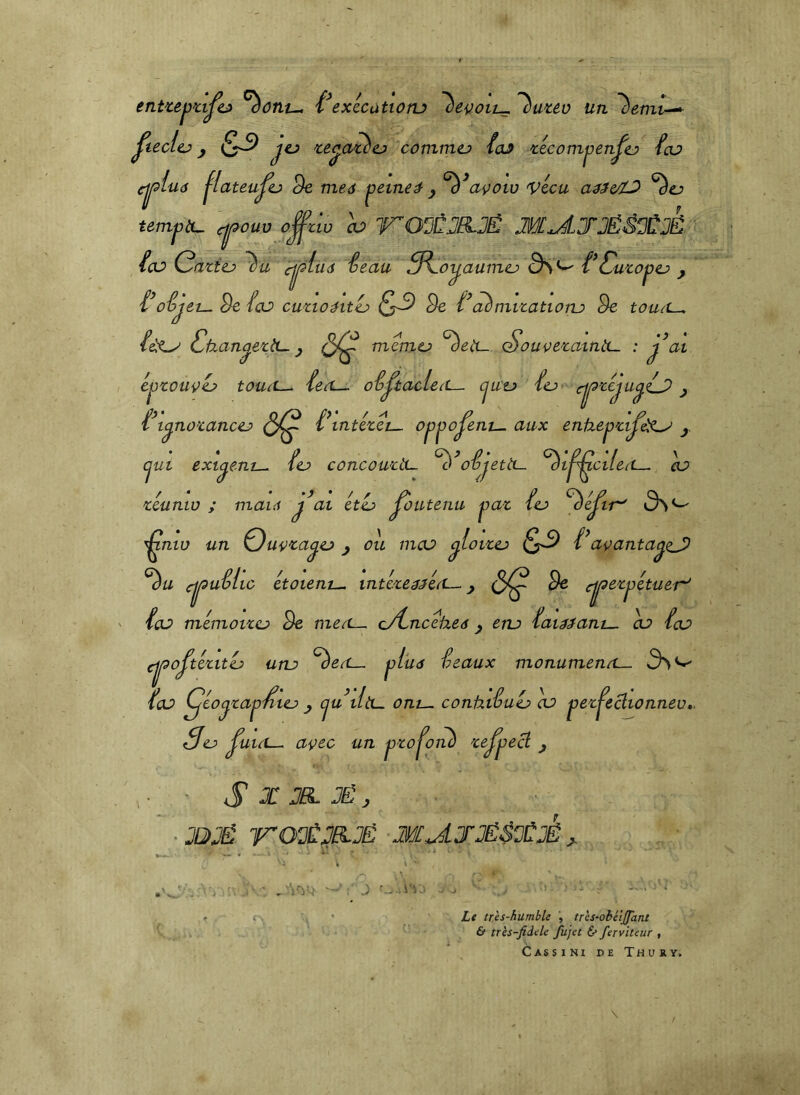 entreprise dont l'exécution devoit durer un demi-
siecle, & je regarde comme la récompense la
plus flateuse de mes peines, d'avoir vécu assez de
temps pour offrir à VOTRE MAJESTÉ
la Carte du plus beau Royaume de l'Europe,
l'objet de la curiosité & de l'admiration de tous
les Etrangers, & même des Souverains : j'ai
éprouvé tous les obstacles que le préjugé,
l'ignorance & l'intérêt opposent aux entreprises,
qui exigent le concours d'objets difficiles à
réunir ; mais j'ai été soutenu par le désir de
finir un Ouvrage, où ma gloire & l'avantage
du public étoient intéressés, & de perpétuer
la mémoire de mes Ancêtres, en laissant à la
postérité un des plus beaux monumens de
la Géographie, qu'ils ont contribué à perfectionner.
Je suis avec un profond respect,
SIRE,
DE VOTRE MAJESTÉ,
Le très-humble, très-obéissant
& très-fidele sujet & serviteur,
CASSINI DE THURY.